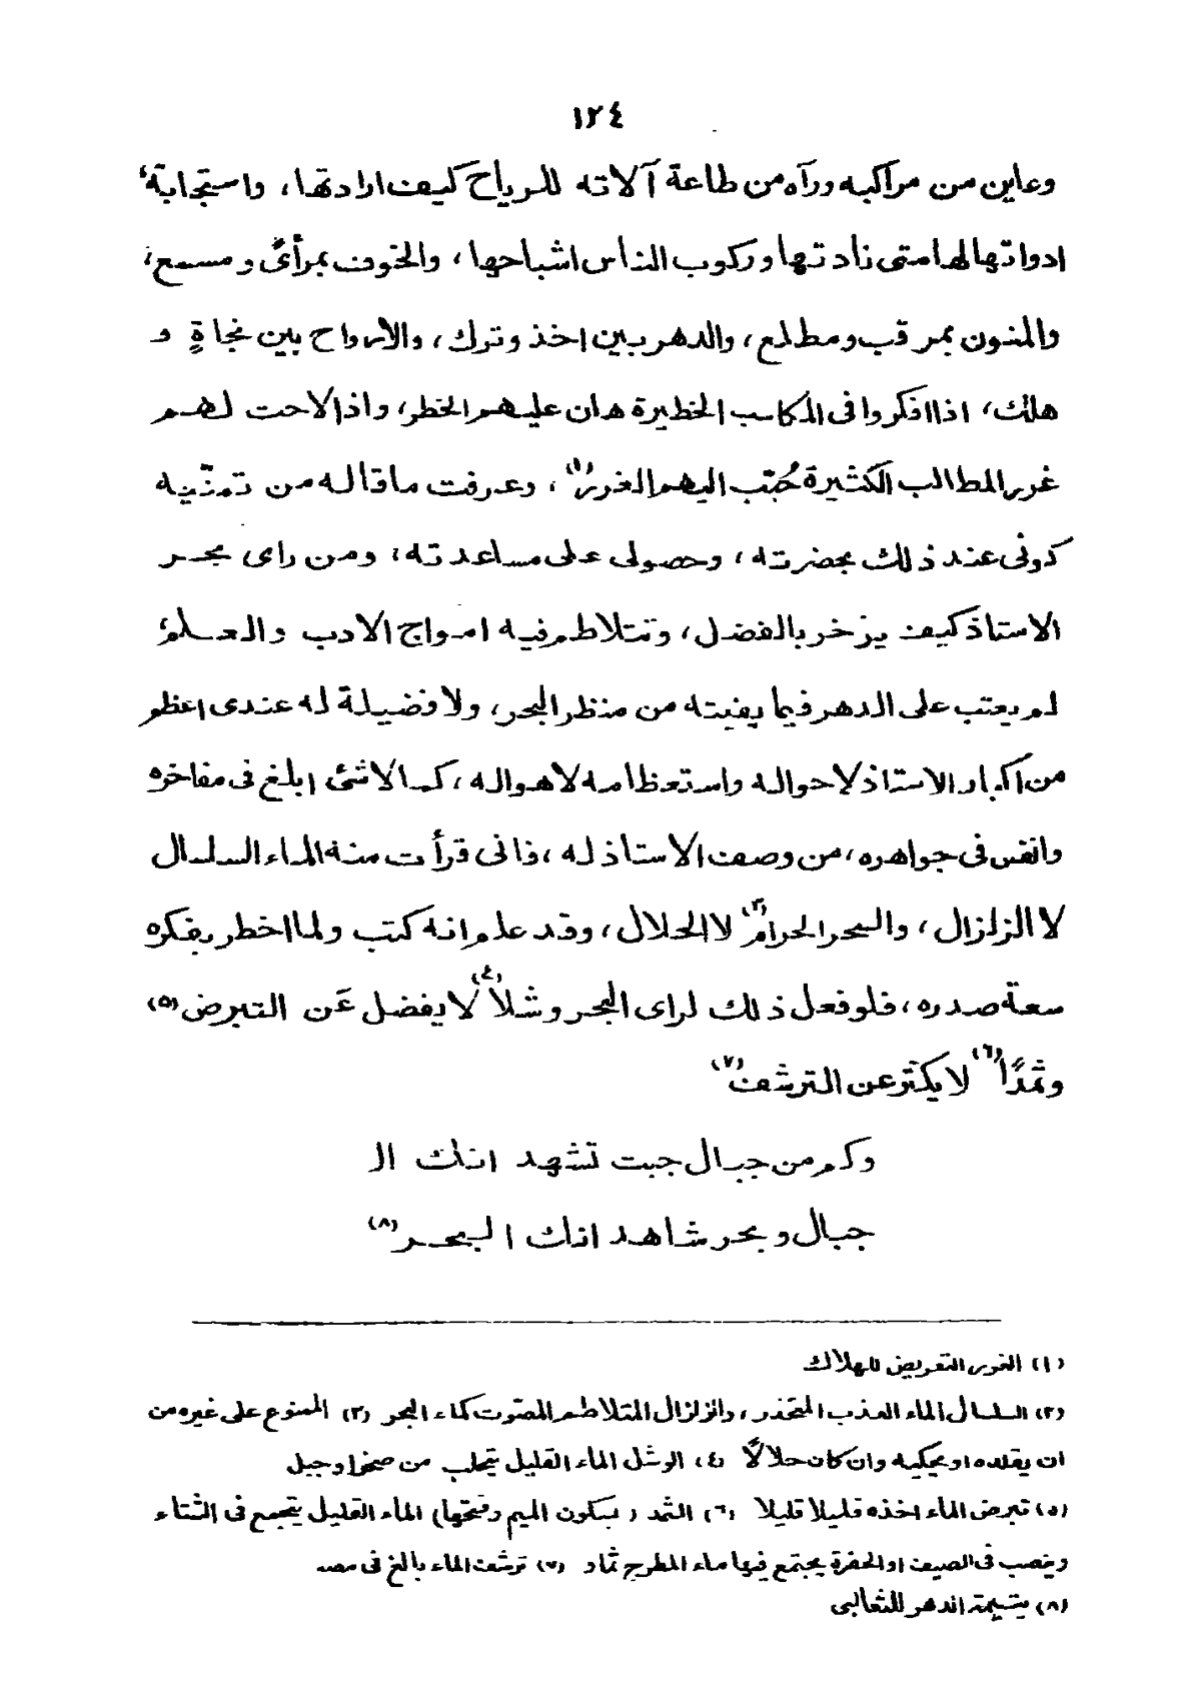 ١٢٤
وعاين من مراكبه ورآه من طاعة آلاته للرياح كيف ارادتها، واستجابة
ادواتها لها متى نادتها وركوب الناس اشباحها، والخوف بمرأىً ومسمع،
والمنون بمرقب ومطلع، والدهر بين اخذ وترك، والارواح بين نجاةٍ و
هلك، اذا افكروا فى المكاسب الخطيرة هان عليهم الخطر، واذا لاحت لهم
غرر المطالب الكثيرة حُبّب اليهم الغرر(١)، وعرفت ما قاله من تمنّيه
كونى عند ذلك بحضرته، وحصولى على مساعدته، ومن راى بحر
الاستاذ كيف يزخر بالفضل، وتتلاطم فيه امواج الادب والعلم،
لم يعتب على الدهر فيما يفيته من منظر البحر، ولا فضيلة له عندى اعظم
من اكبار الاستاذ لاحواله واستعظامه لاهواله، كما لا شئ ابلغ فى مفاخره
وانفس فى جواهره، من وصف الاستاذ له، فانى قرأت منه الماء السلسال
لا الزلزال، والسحر الحرام(٣) لا الحلال، وقد علم انه كتب ولما اخطر بفكره
سعة صدره، فلو فعل ذلك لراى البحر وشلاً(٤) لا يفضل عَن التبرض(٥)
وثمدًا(٦) لا يكثر عن الترشف(٧)
وكم من جبال جبت تشهد انك الـ
جبال وبحر شاهد انك البحر(٨)
(١) الغرر، التعريض للهلاك
(٢) السلسال الماء العذب المتحدر، والزلزال المتلاطم المصّوت كماء البحر (٣) الممنوع على غيره من
ان يقلده او يحكيه وان كان حلالاً (٤) الوشل الماء القليل يتحلب من صخر او جبل
(٥) تبرض الماء اخذه قليلا قليلا (٦) الثمد (بسكون الميم وفتحها) الماء القليل يتجمع فى الشتاء
وينصب فى الصيف او الحفرة يجتمع فيها ماء المطر ج ثماد (٧) ترشف الماء بالغ فى مصه
(٨) يتيمة الدهر للثعالبى